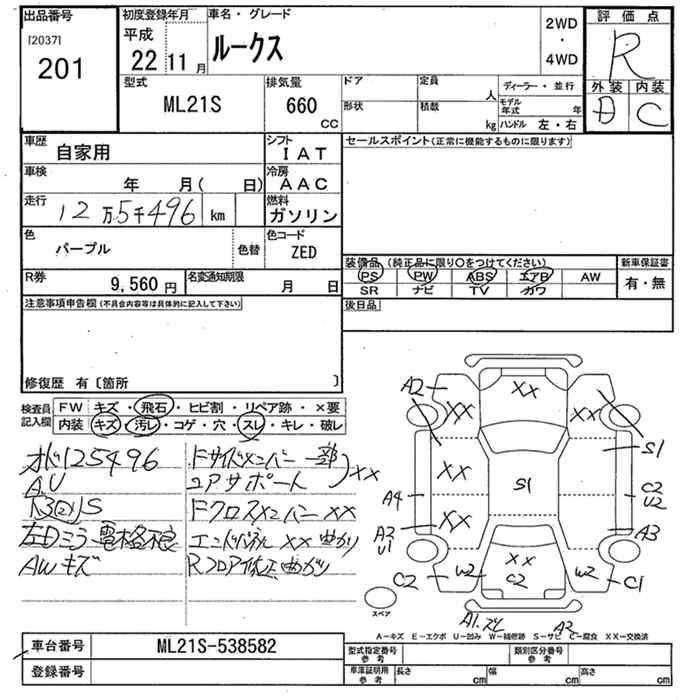 出品番号
[2037]
201
初度登録年月
平成
22 11 月
車名・グレード
ルークス
2WD
・
4WD
評価点
R
外装 内装
D C
型式
ML21S
排気量
660
CC
ドア 定員 人
形状 積載 kg
ディーラー・並行
モデル年式 年
ハンドル 左・右
車歴
自家用
シフト
IAT
車検
年 月( 日)
冷房
AAC
走行
12 万 5千496 km
燃料
ガソリン
色
パープル
色替
色コード
ZED
R券
9,560 円
名変通知期限
月 日
セールスポイント(正常に機能するものに限ります)
装備品(純正品に限り○をつけてください)
PS PW ABS エアB AW
SR ナビ TV カワ
新車保証書
有・無
後日品
注意事項申告欄(不具合内容等は具体的に記入して下さい)
修復歴 有〔箇所 〕
検査員記入欄
FW キズ・飛石・ヒビ割・リペア跡・×要
内装 キズ・汚レ・コゲ・穴・スレ・キレ・破レ
オド125496
AU
左ドミラー電格不良
AWキズ
Fサイドメンバー一部
コアサポート
XX
Fクロスメンバー XX
エンドパネル XX 曲がり
Rフロア修正曲がり
A2
XX
XX
XX
S1
XX
S1
A4
C2
U2
XX
A3
U1
A3
XX
C2
W2
C2
W2
C1
スペア
A1.ズレ
A2
A-キズ E-エクボ U-凹み W-補修跡 S-サビ C-腐食 XX-交換済
車台番号
ML21S-538582
登録番号
型式指定番号
参考
類別区分番号
参考
車庫証明用
参考
長さ cm
幅 cm
高さ cm